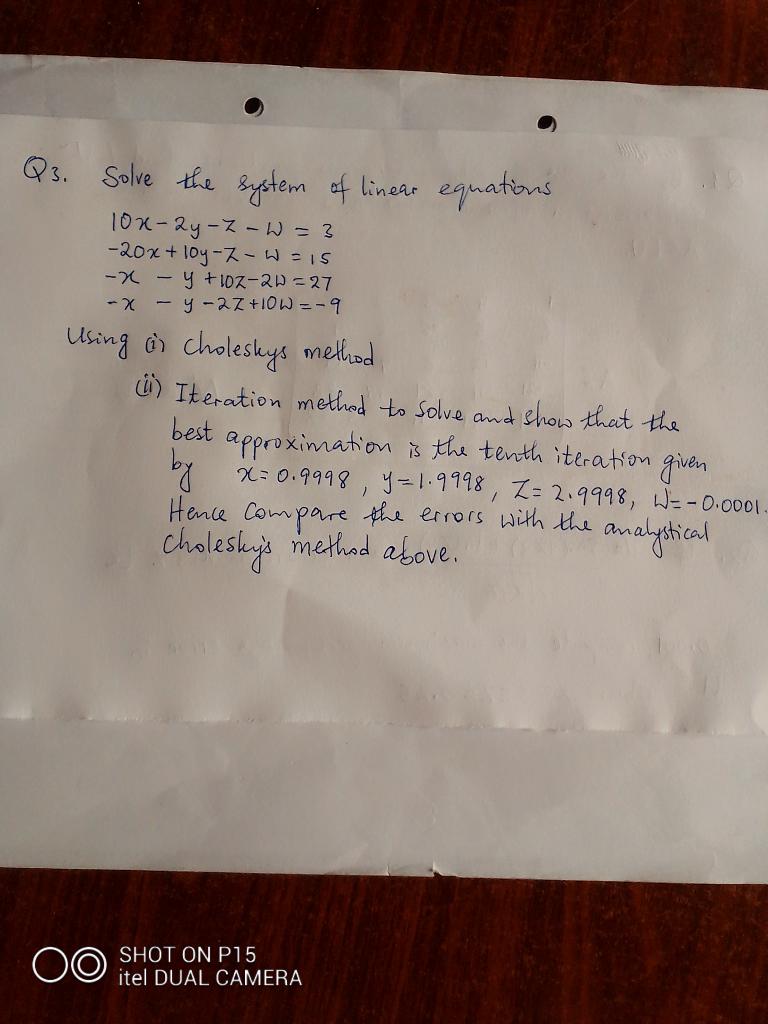 Q3. Solve the system of linear equations
10x-2y-z-w = 3
-20x+10y-z-w = 15
-x - y +10z-2w = 27
-x - y -2z+10w = -9
Using (i) Choleskys method
(ii) Iteration method to solve and show that the
best approximation is the tenth iteration given
by x=0.9998, y=1.9998, z=2.9998, w=-0.0001.
Hence compare the errors with the analystical
Cholesky's method above.
SHOT ON P15
itel DUAL CAMERA